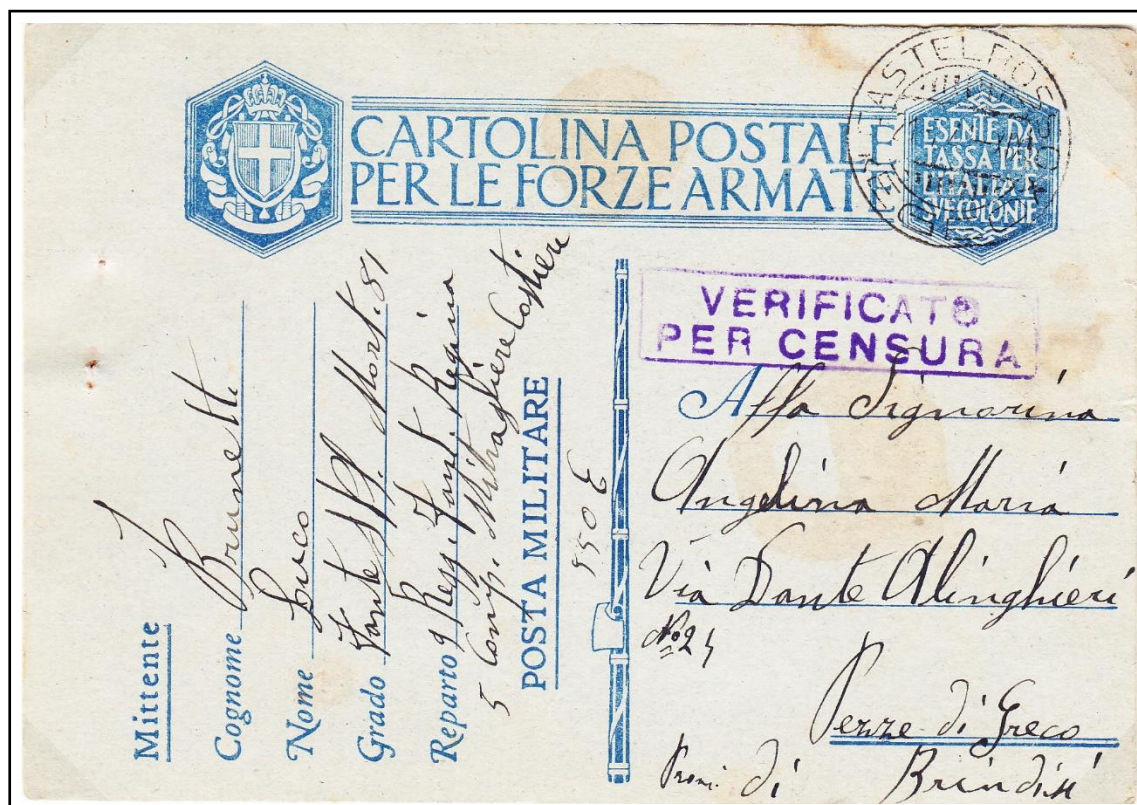 CARTOLINA POSTALE
PER LE FORZE ARMATE
ESENTE DA
TASSA PER
L'ITALIA E
SVE COLONIE
CASTELROSSO
VERIFICATO
PER CENSURA
Mittente
Cognome Brunetti
Nome
Grado Fante Mort. 81
Reparto 9 Regg. Fant. Regina
5 Comp. Mitragliere Costiere
POSTA MILITARE
550 E
Alla Signorina
Angelina Maria
Via Dante Alinghieri
Nº 24
Pezze di Greco
di Brindisi